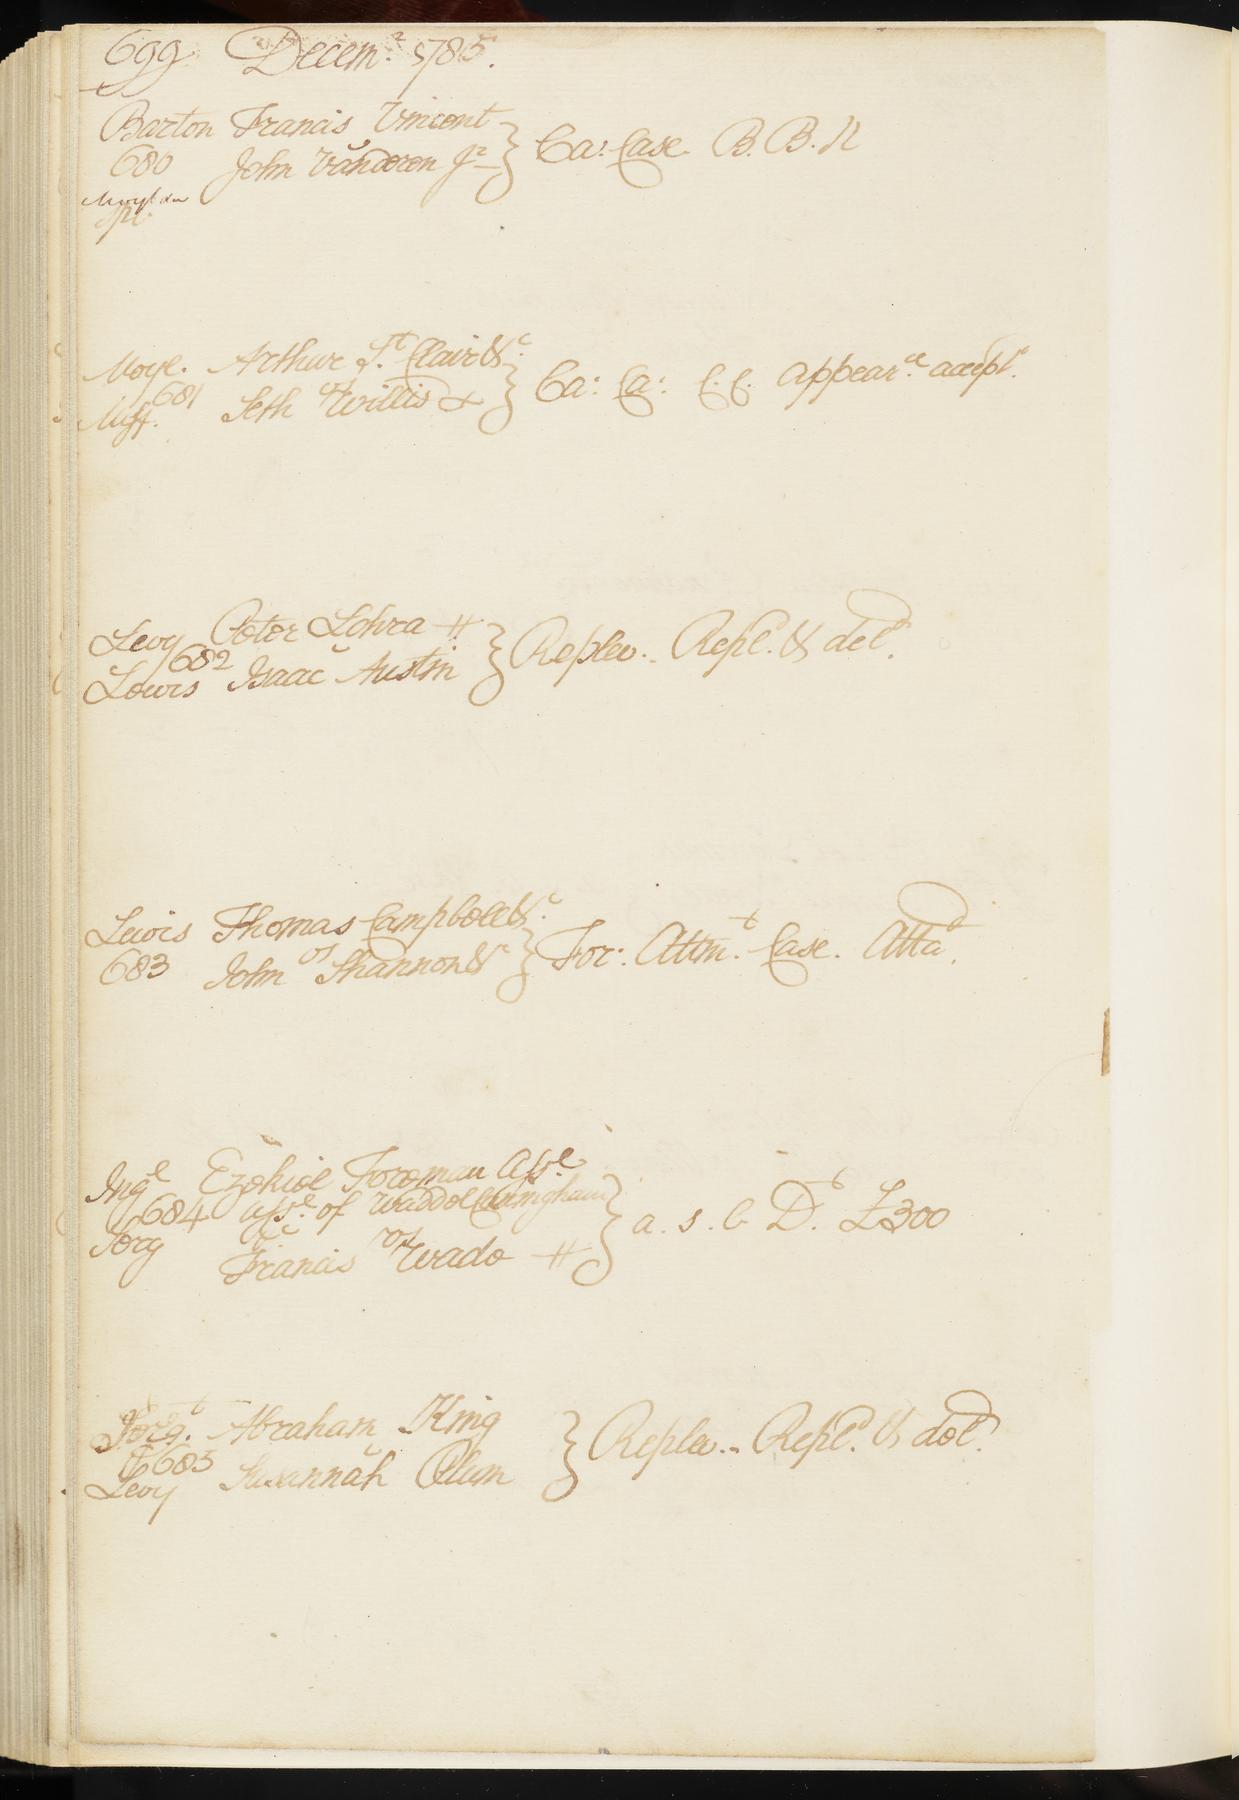 699 Decem.r 1785.
Barton Francis Vincent
680 John Vandoren Jr } Ca: Case. B. B. N
Moylan
Moyl. Arthur St. Clair &c.
681 Seth vs Willis & } Ca: Ca: C. C. Appear.ce accept.d
Miff.
Levy Peter Lohra #
682 } Replev.. Repl.d & del.d
Lewis Isaac Austin
Lewis Thomas Campbell &c.
683 John vs Shannon & } For: Attm.t Case. Atta.d
Ing.l Ezekiel Foreman Ass.e
684 ass.e of Waddel Cuningham
&c } a. s. b D.t £300
Serg Francis vs Wade #
Serg.t Abraham King
685 } Replev.. Repl.d & del.d
Levy Susannah Plum